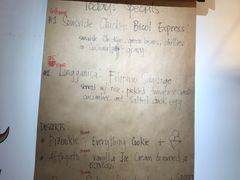 Today's Specials
#1 Sousvide Chicken Bicol Express
sousvide chicken, green beans, chillies
in coconut gravy
#2 Longganisa: Filipino Sausage
served w/ rice, pickled
cucumber, and salted duck egg
DESSERTS
Everything Cookie +
Affogato - Vanilla Ice Cream drowned in
espresso